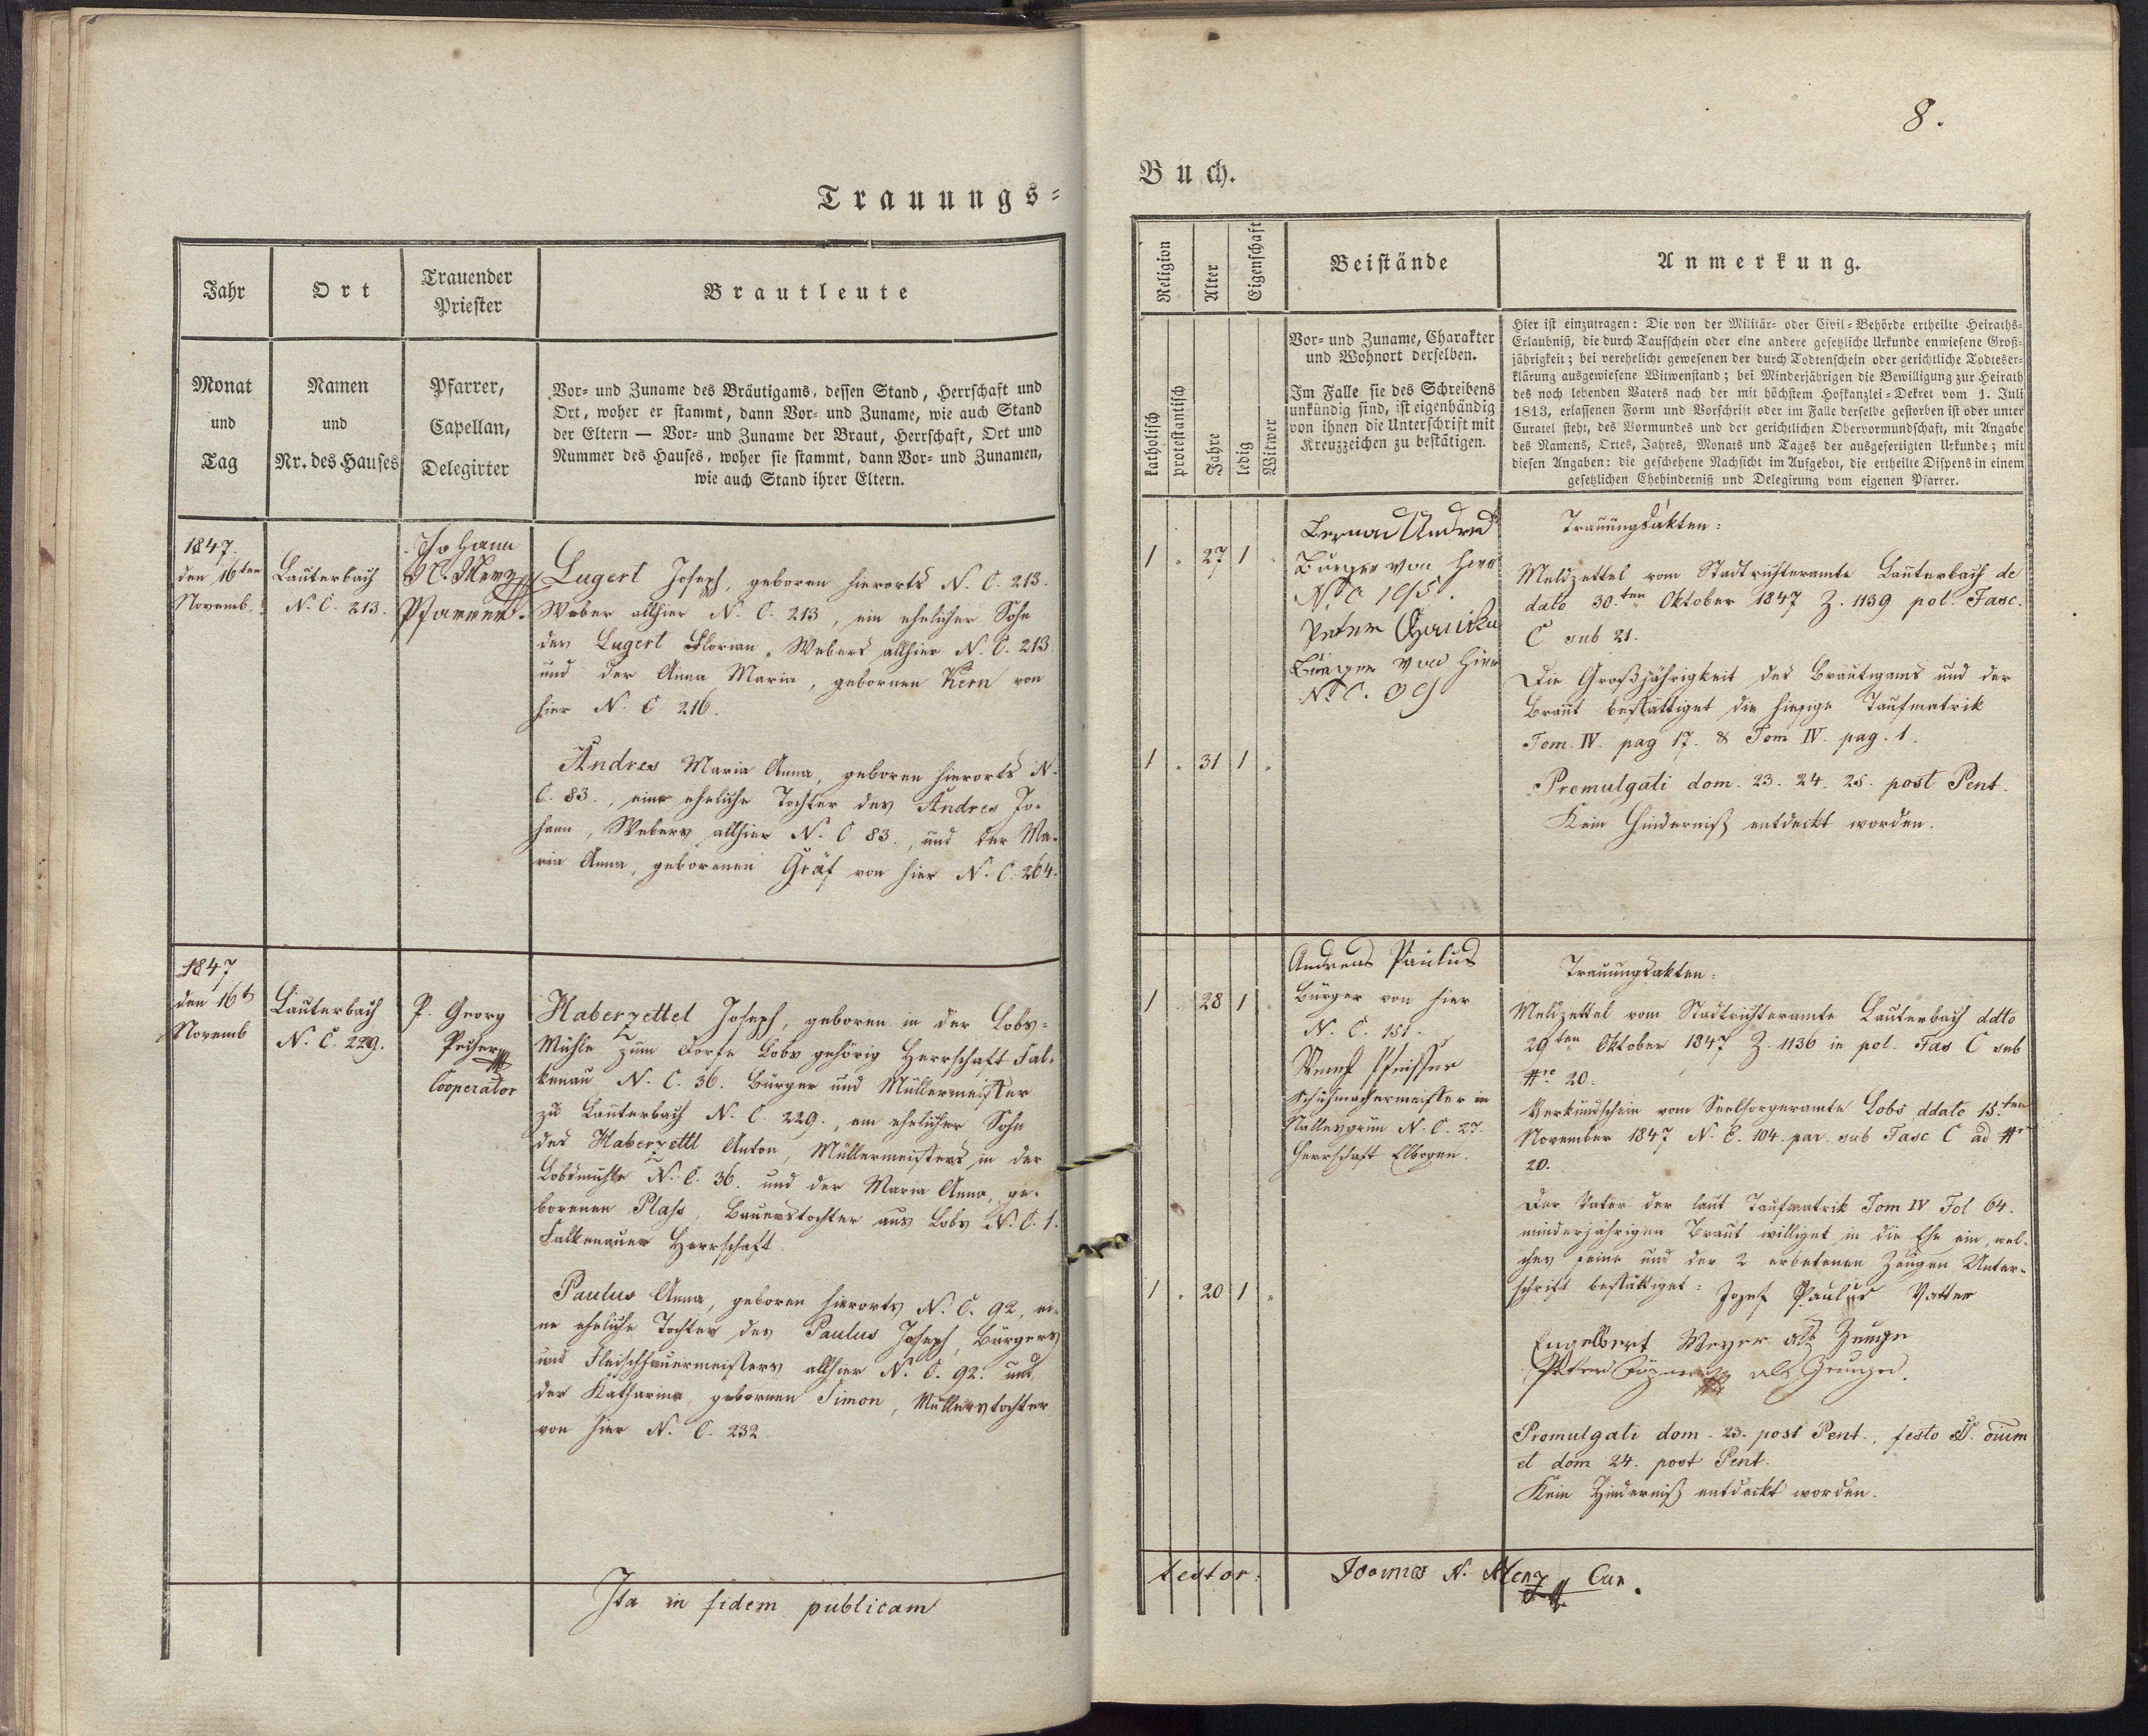 Trauungs-
Jahr
Monat
und
Tag
Ort
Namen
und
Nr. des Hauses
Trauender
Priester
Pfarrer,
Capellan,
Delegirter
Brautleute
Vor- und Zuname des Bräutigams, dessen Stand, Herrschaft und
Ort, woher er stammt, dann Vor- und Zuname, wie auch Stand
der Eltern — Vor- und Zuname der Braut, Herrschaft, Ort und
Nummer des Hauses, woher sie stammt, dann Vor- und Zunamen,
wie auch Stand ihrer Eltern.
1847.
den 16ten
Novemb.
Lauterbach
N. C. 213.
Johann
N. Menz
Pfarrer.
Lugert Joseph, geboren hierorts N. C. 213.
Weber allhier N. C. 213, ein ehelicher Sohn
des Lugert Florian, Webers allhier N. C. 213
und der Anna Maria, gebornen Kern von
hier N. C 216.
Andres Maria Anna, geboren hierorts N.
C. 83., eine eheliche Tochter des Andres Jo-
hann, Webers allhier N. C 83., und der Ma-
ria Anna, geborenen Gräf von hier N. C. 264.
1847
den 16t
Novemb
Lauterbach
N. C. 229.
P. Georg
Pecher
Cooperator
Haberzettel Joseph, geboren in der Lobs-
Mühle zum Dorfe Lobs gehörig Herrschaft Fal-
kenau N. C. 36. Bürger und Müllermeister
zu Lauterbach N. C. 229., ein ehelicher Sohn
des Haberzettl Anton, Müllermeisters in der
Lobsmühle N. C. 36. und der Maria Anna, ge-
borenen Plass, Bauerstochter aus Lobs N. C. 1.
Falkenauer Herrschaft.
Paulus Anna, geboren hierorts N. C. 92, ei-
ne eheliche Tochter des Paulus Joseph, Bürgers
und Fleischhauermeisters allhier N. C. 92. und
der Katharina, gebornen Simon, Müllerstochter
von hier N. C. 232.
Ita in fidem publicam
8.
Buch.
Religion
katholisch
protestantisch
Alter
Jahre
Eigenschaft
ledig
Witwer
Beistände
Vor- und Zuname, Charakter
und Wohnort derselben.
Im Falle sie des Schreibens
unkündig sind, ist eigenhändig
von ihnen die Unterschrift mit
Kreuzzeichen zu bestätigen.
Anmerkung.
Hier ist einzutragen: Die von der Militär- oder Civil-Behörde ertheilte Heiraths-
Erlaubniß, die durch Taufschein oder eine andere gesetzliche Urkunde enwiesene Groß-
jährigkeit; bei verehelicht gewesenen der durch Todtenschein oder gerichtliche Todteser-
klärung ausgewiesene Witwenstand; bei Minderjährigen die Bewilligung zur Heirath
des noch lebenden Vaters nach der mit höchstem Hofkanzlei-Dekret vom 1. Juli
1813, erlassenen Form und Vorschrift oder im Falle derselbe gestorben ist oder unter
Curatel steht, des Vormundes und der gerichtlichen Obervormundschaft, mit Angabe
des Namens, Ortes, Jahres, Monats und Tages der ausgefertigten Urkunde; mit
diesen Angaben: die geschehene Nachsicht im Aufgebot, die ertheilte Dispens in einem
gesetzlichen Ehehinderniß und Delegirung vom eigenen Pfarrer.
1 " 27 1
1 " 31 1 "
Andres
Burger von hier
N. C
Peter
Bürger von hier
N. C.
Trauungsakten:
Meldzettel vom Stadtrichteramte Lauterbach de
dato 30.ten Oktober 1847 Z. 1139 pol. Fasc.
C sub 21.
Die Großjährigkeit des Bräutigams und der
Braut bestättiget die hiesige Taufmatrik
Tom. IV. pag 17. & Tom IV. pag. 1.
Promulgati dom. 23. 24. 25. post Pent.
Kein Hinderniß entdeckt worden.
1 28 1
1 " 20 1 "
Andreas Paulus
Bürger von hier
N. C. 151.
Schuhmachermeister in
N. C. 27.
Herrschaft Elbogen.
Trauungsakten:
Meldzettel vom Stadtrichteramte Lauterbach ddto
29ten Oktober 1847 Z. 1136 in pol. Fas C sub
Nro 20.
Verkündschein vom Seelsorgeramte Lobs ddato 15.ten
November 1847 N. E. 104. par. sub Fasc C ad Nr
20.
Der Vater der laut Taufmatrik Tom IV Fol 64.
minderjährigen Braut williget in die Ehe ein, wel-
ches seine und der 2 erbetenen Zeugen Unter-
schrift bestättiget: Jozef Paulus Vatter
Engelbert Meyer als Zeuge
Peter als Zeuge.
Promulgati dom. 23. post Pent., festo SS. oium
et dom 24. post Pent.
Kein Hinderniß entdeckt worden.
testor:
Joannes N. Menz Cur.